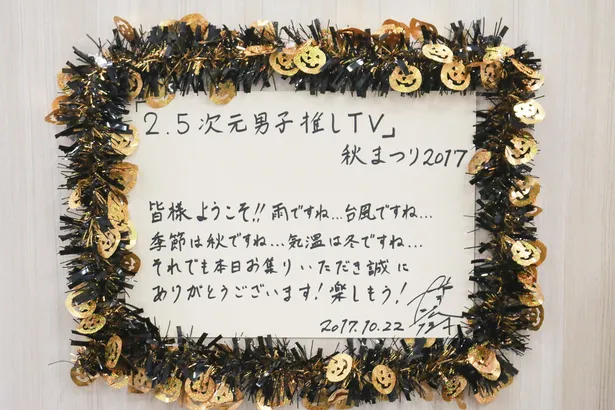 「2.5次元男子推しTV」
秋まつり2017
皆様ようこそ!!雨ですね...台風ですね...
季節は秋ですね...気温は冬ですね...
それでも本日お集りいただき誠に
ありがとうございます!楽しもう!
2017.10.22